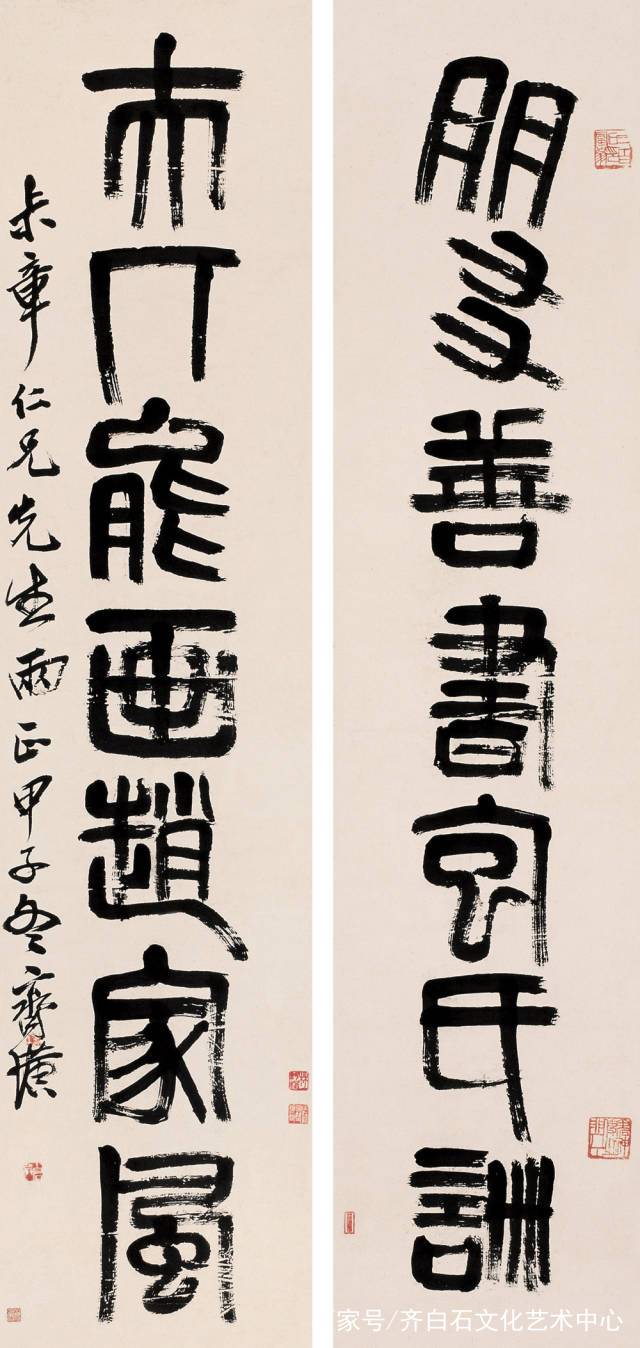 朋友善書氏訓
能画趙家風
章仁兄先生兩正甲子冬齊璜
家号/齐白石文化艺术中心